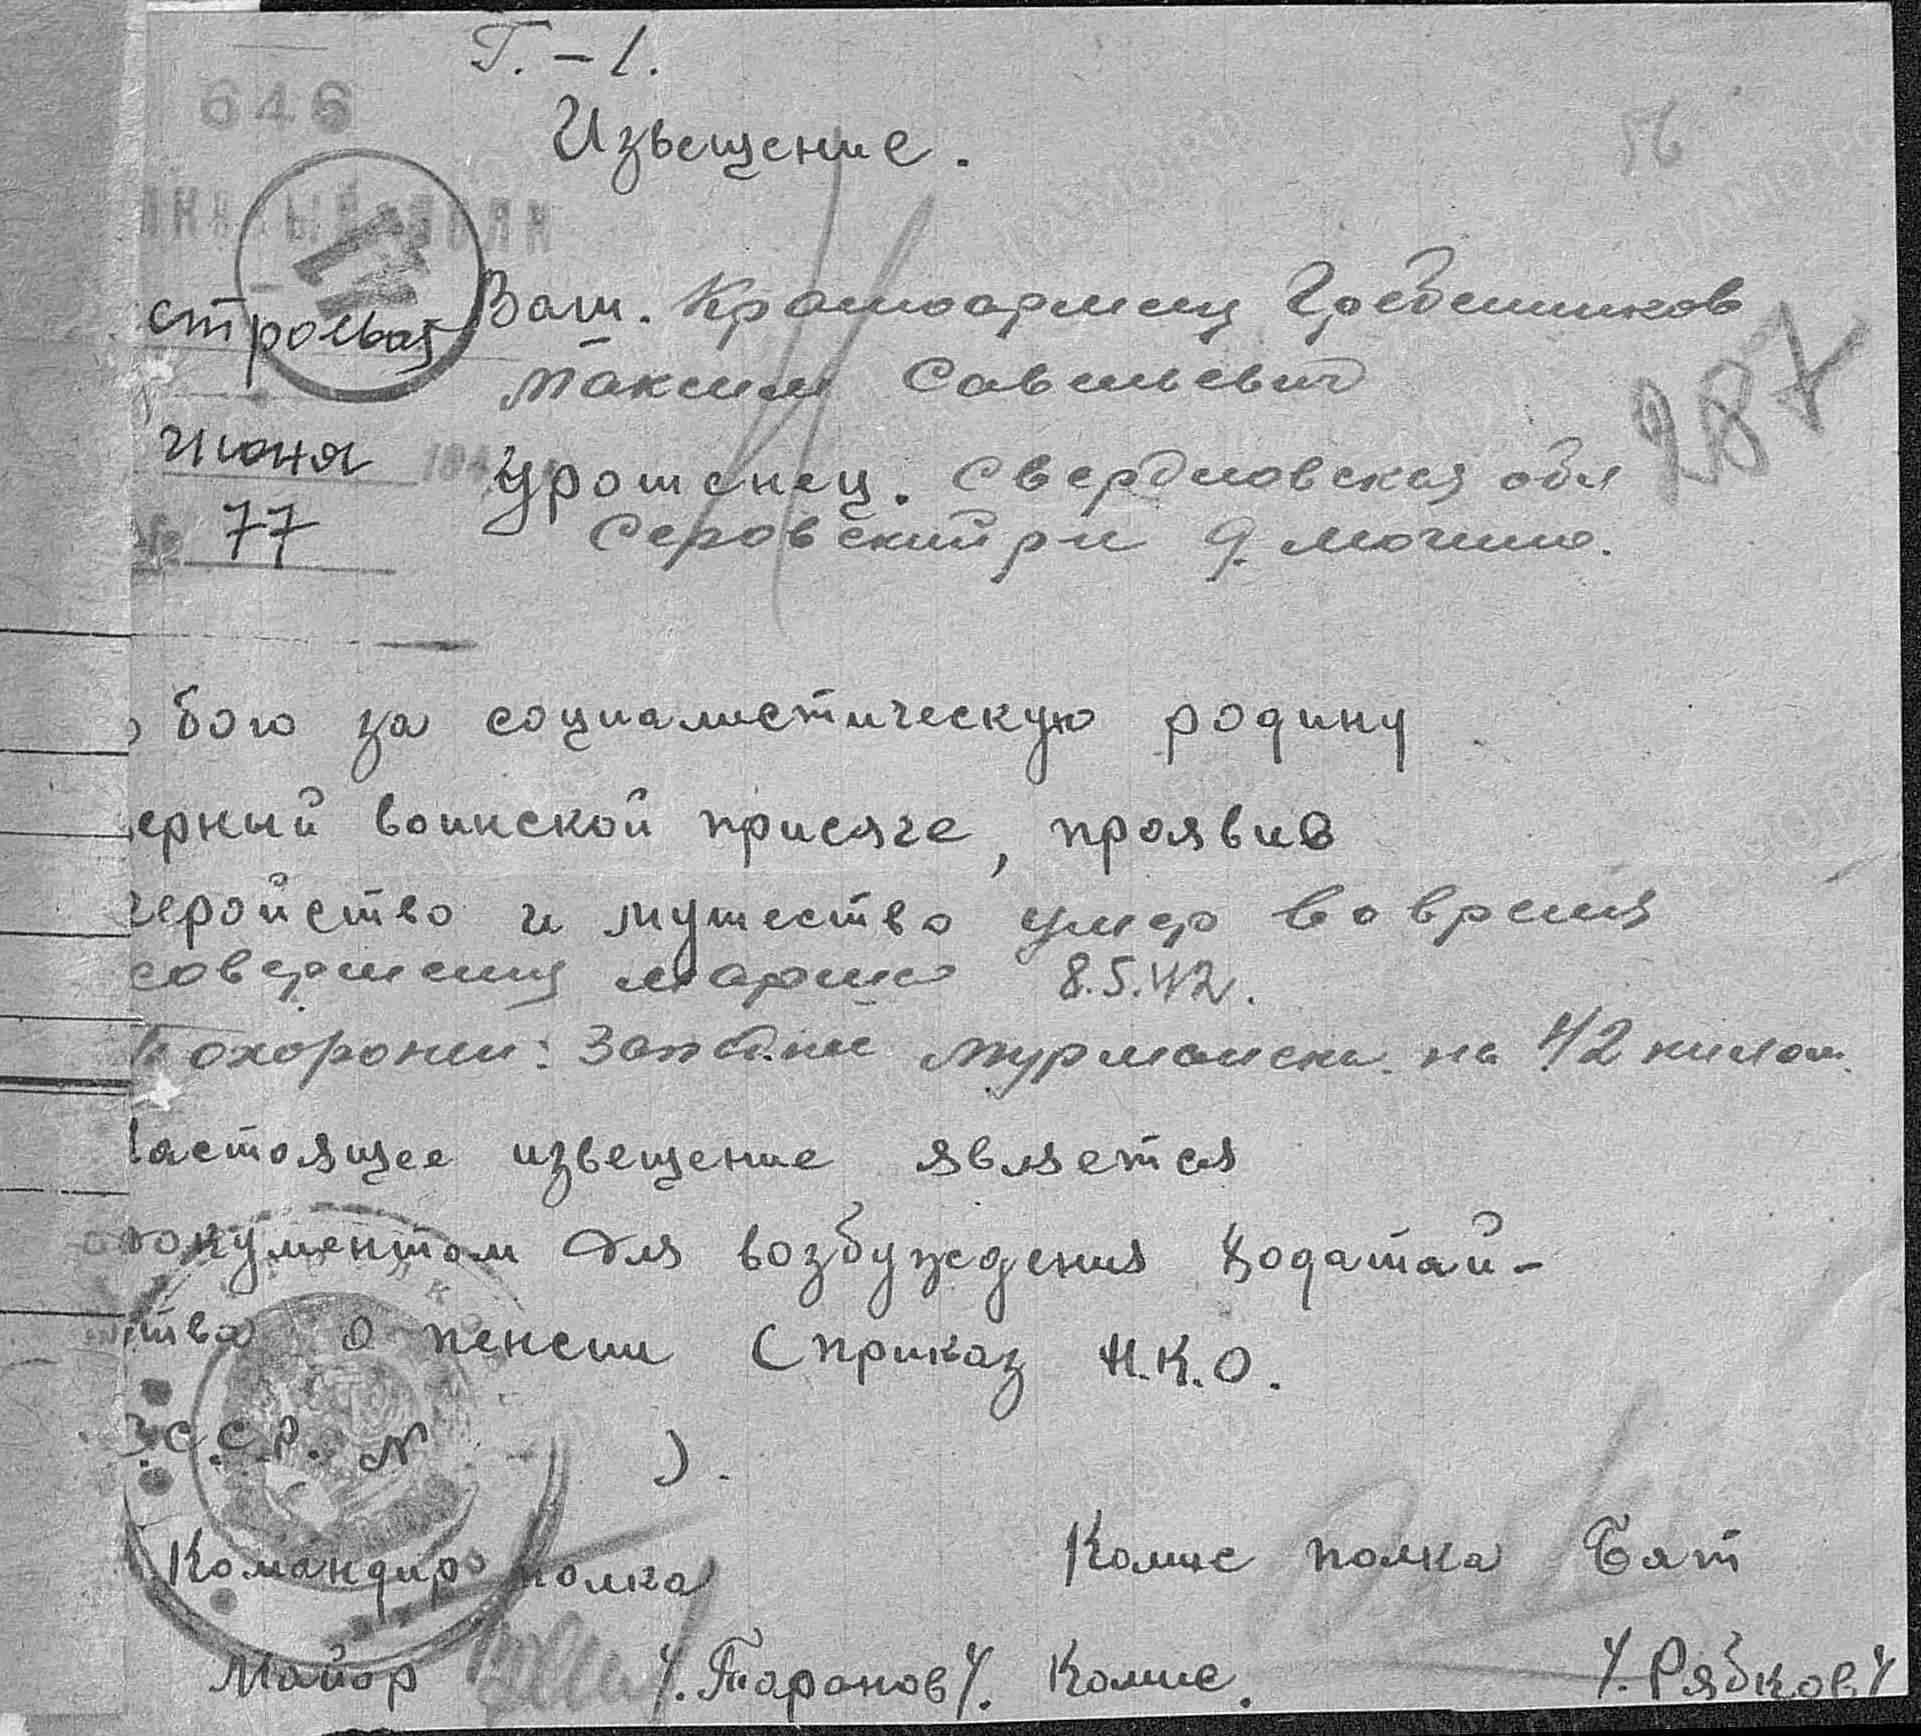 Г. – 1.
646
Извещение.
56
строевая
Ваш. Красноармеец Гребенщиков
Максим Савельевич
287
июня
Уроженец. Свердловская обл
77
Серовский рн д. Мочино.
бою за социалистическую родину
ерный воинской присяге, проявив
геройство и мужество умер во время
совершения марша 8.5.42.
Похоронен: Западнее Мурманска на 42 килом.
астоящее извещение является
документом для возбуждения ходатай-
ства о пенсии (приказ Н.К.О.
С.С.Р. № ).
Командир полка
Комис полка Бат
Майор /.Таранов/. Комис. /.Рябков/